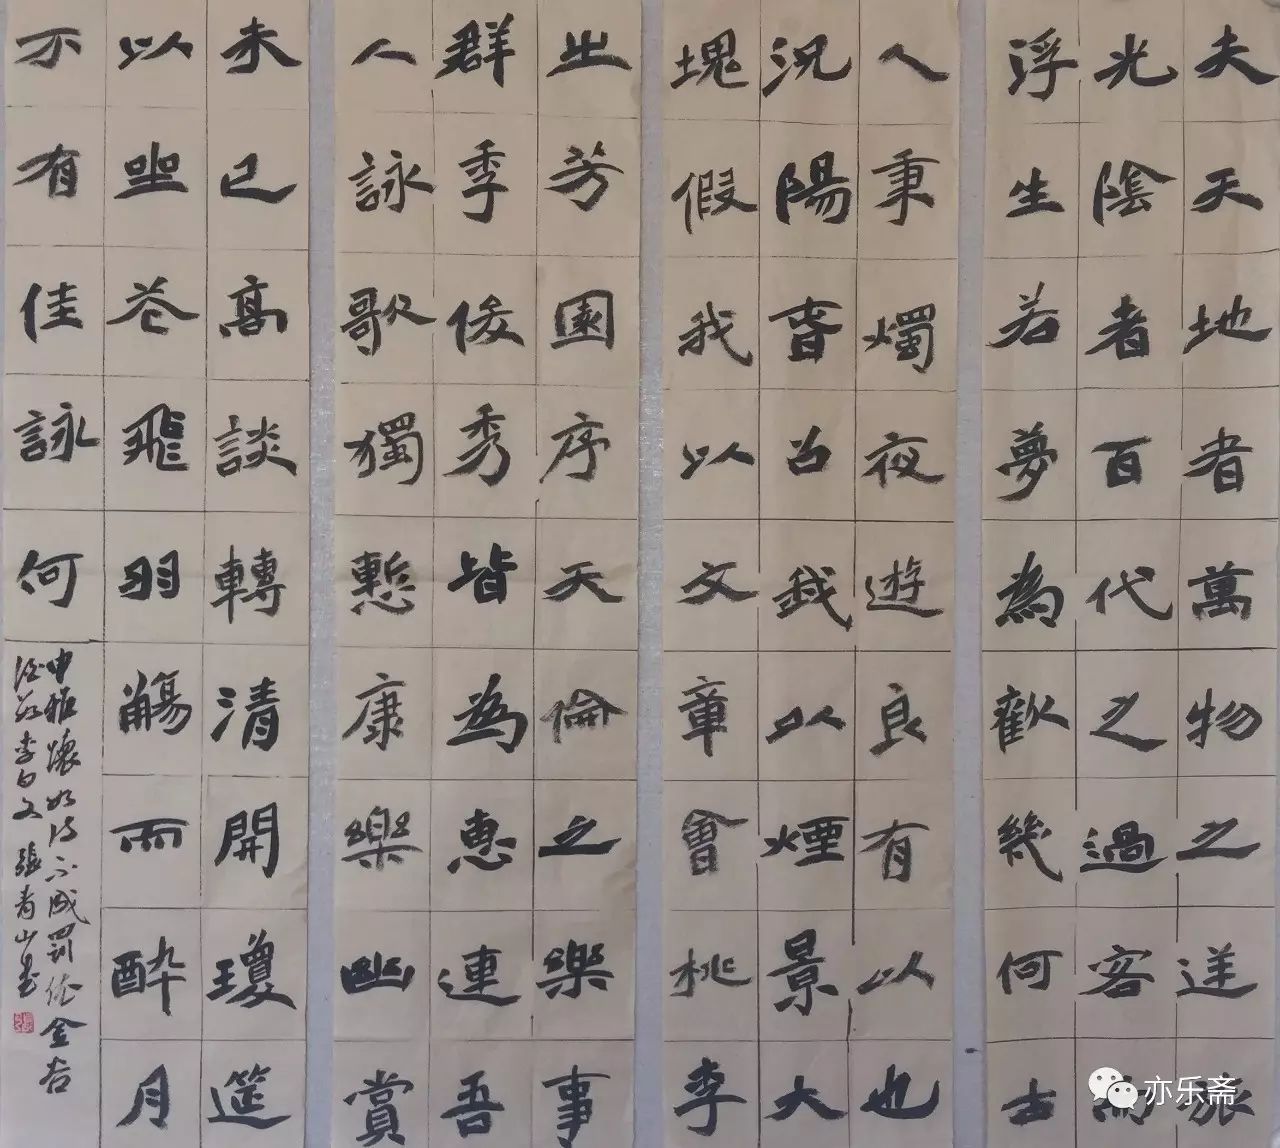 夫天地者萬物之逆旅
光陰者百代之過客而
浮生若夢為歡幾何古
人秉燭夜遊良有以也
況陽春召我以煙景大
塊假我以文章會桃李
之芳園序天倫之樂事
群季俊秀皆為惠連吾
人詠歌獨慙康樂幽賞
未已高談轉清開瓊筵
以坐花飛羽觴而醉月
不有佳詠何
申雅懷如詩不成罰依金谷
酒數李白文 張青山書
亦乐斋